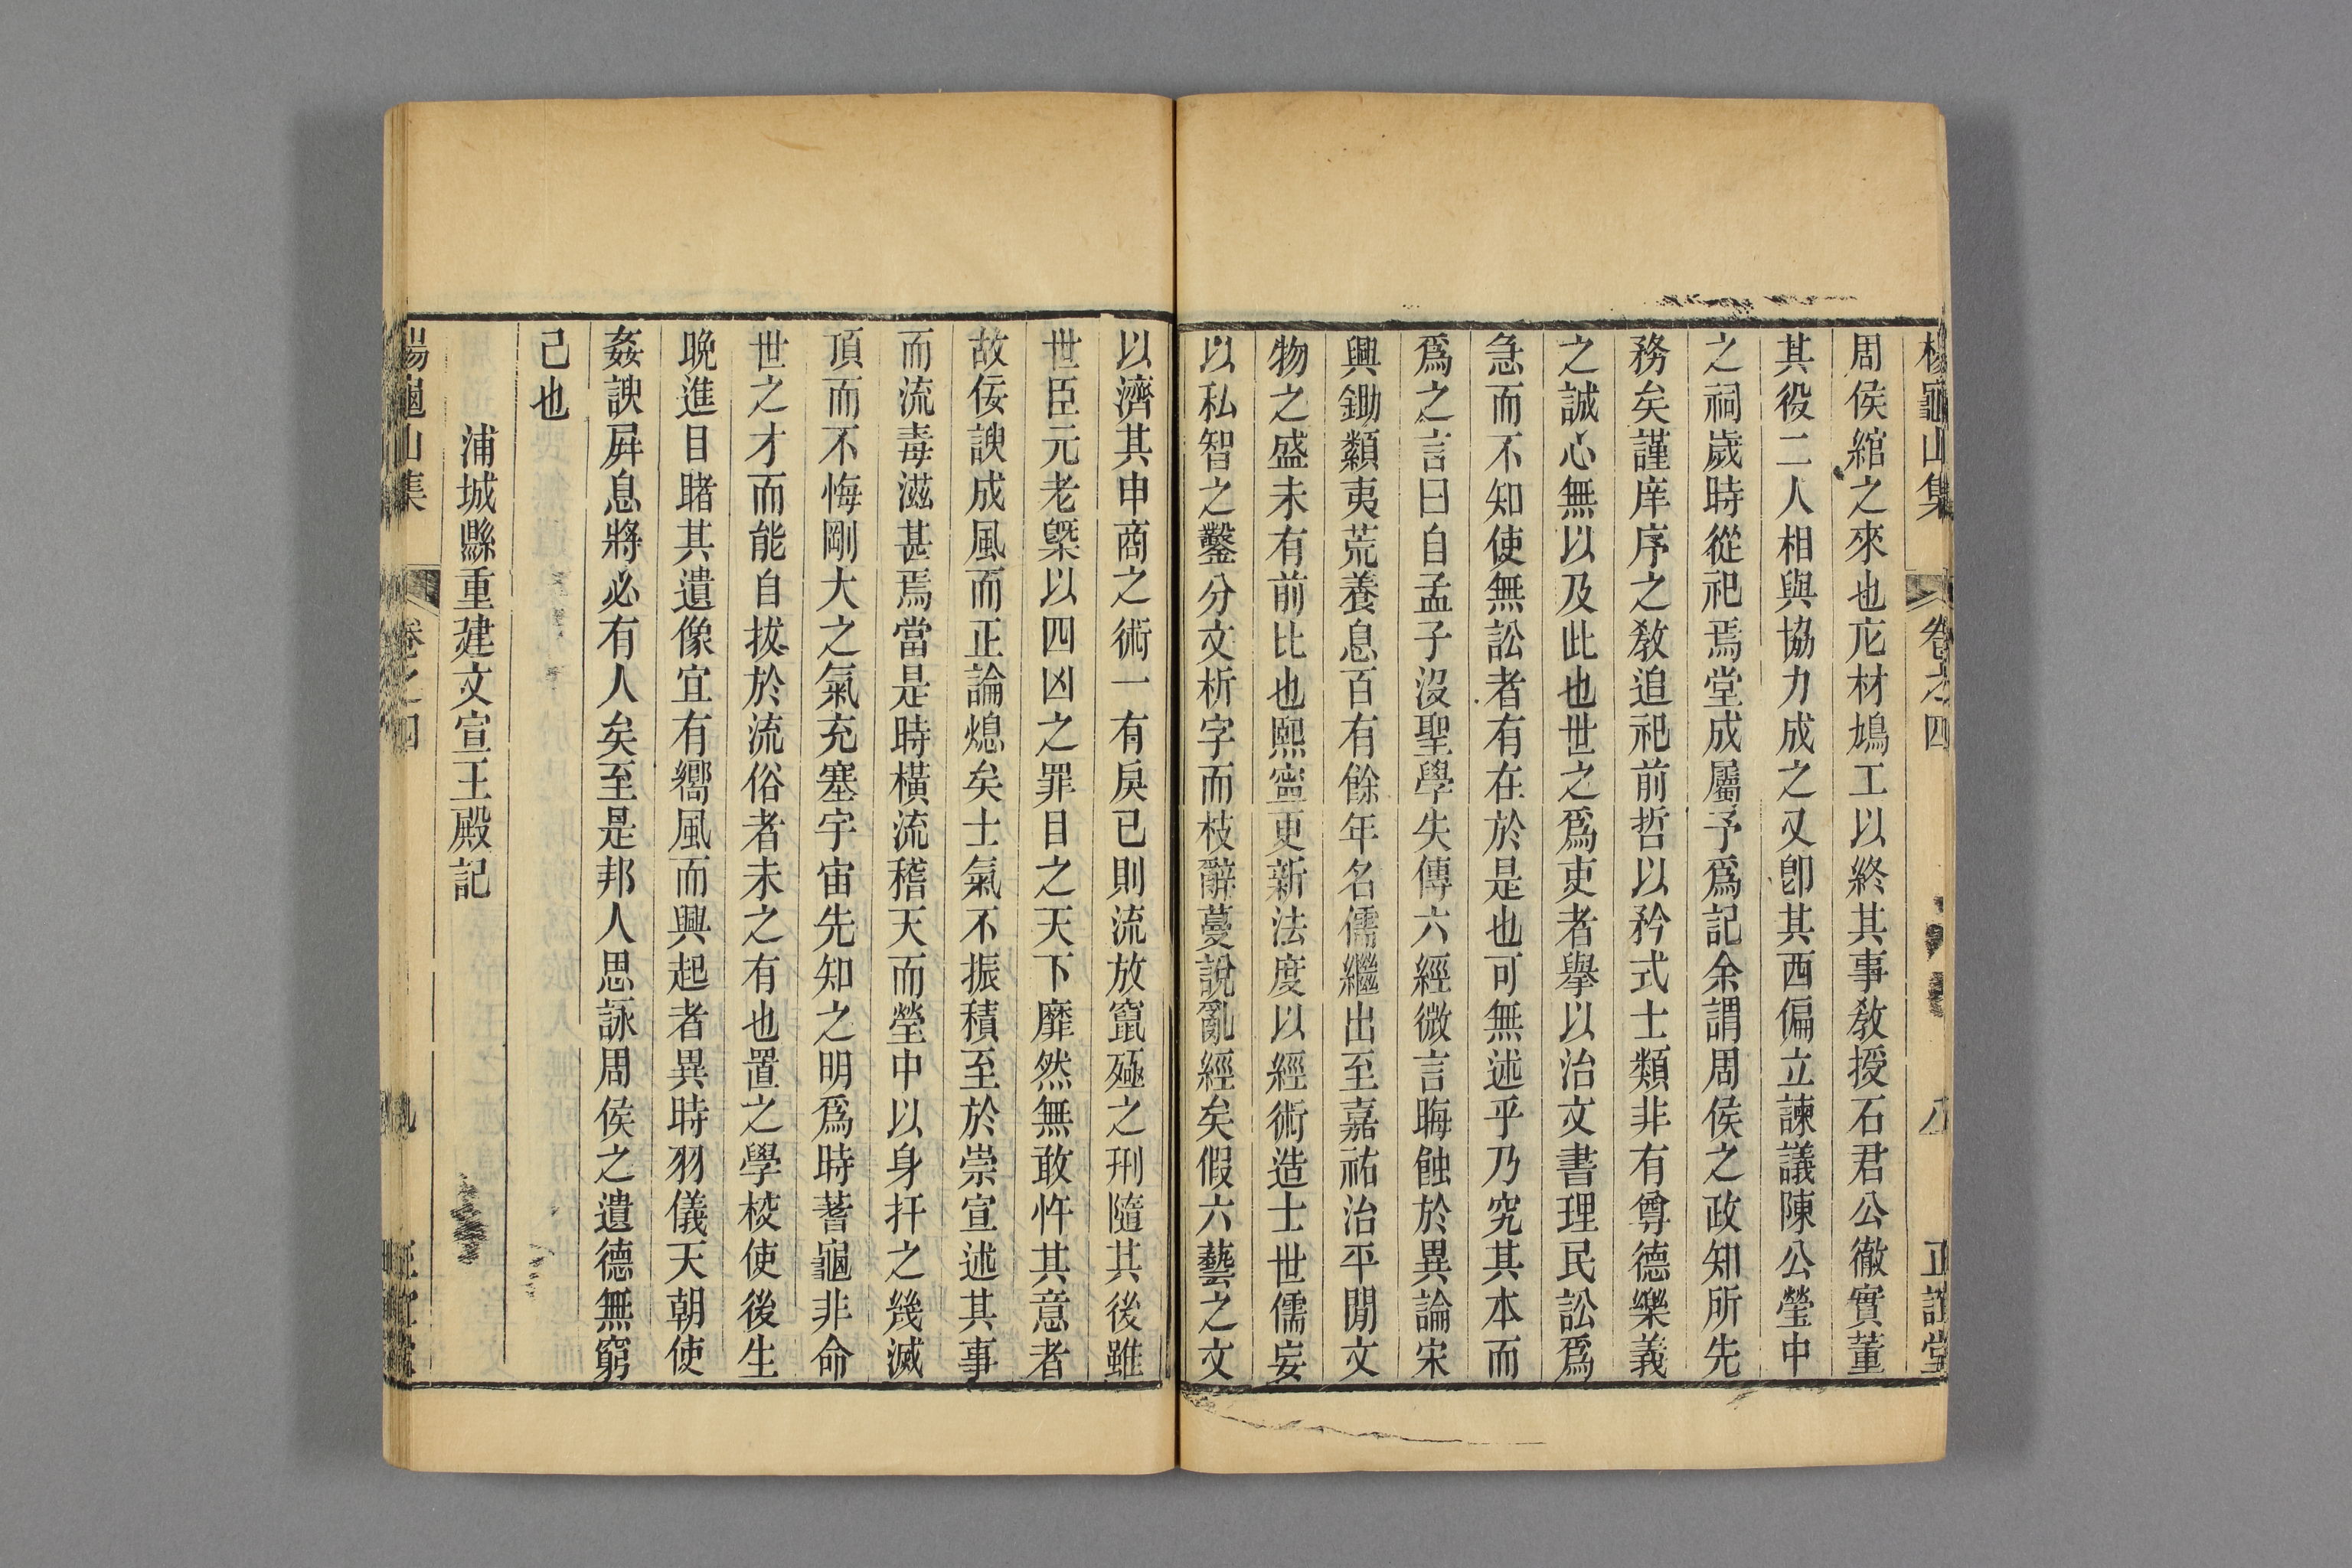 楊龜山集 卷之四 八 正誼堂
周侯綰之來也庀材鳩工以終其事教授石君公徹實董
其役二人相與協力成之又卽其西偏立諫議陳公瑩中
之祠歲時從祀焉堂成屬予爲記余謂周侯之政知所先
務矣謹庠序之教追祀前哲以矜式士類非有尊德樂義
之誠心無以及此也世之爲吏者舉以治文書理民訟爲
急而不知使無訟者有在於是也可無述乎乃究其本而
爲之言曰自孟子沒聖學失傳六經微言晦蝕於異論宋
興鋤纇夷荒養息百有餘年名儒繼出至嘉祐治平閒文
物之盛未有前比也熙寧更新法度以經術造士世儒妄
以私智之鑿分文析字而枝辭蔓說亂經矣假六藝之文
以濟其申商之術一有戾已則流放竄殛之刑隨其後雖
世臣元老槩以四凶之罪目之天下靡然無敢忤其意者
故佞諛成風而正論熄矣士氣不振積至於崇宣述其事
而流毒滋甚焉當是時橫流稽天而瑩中以身扞之幾滅
頂而不悔剛大之氣充塞宇宙先知之明爲時蓍龜非命
世之才而能自拔於流俗者未之有也置之學校使後生
晚進目睹其遺像宜有嚮風而興起者異時羽儀天朝使
姦諛屏息將必有人矣至是邦人思詠周侯之遺德無窮
己也
浦城縣重建文宣王殿記
楊龜山集 卷之四 九